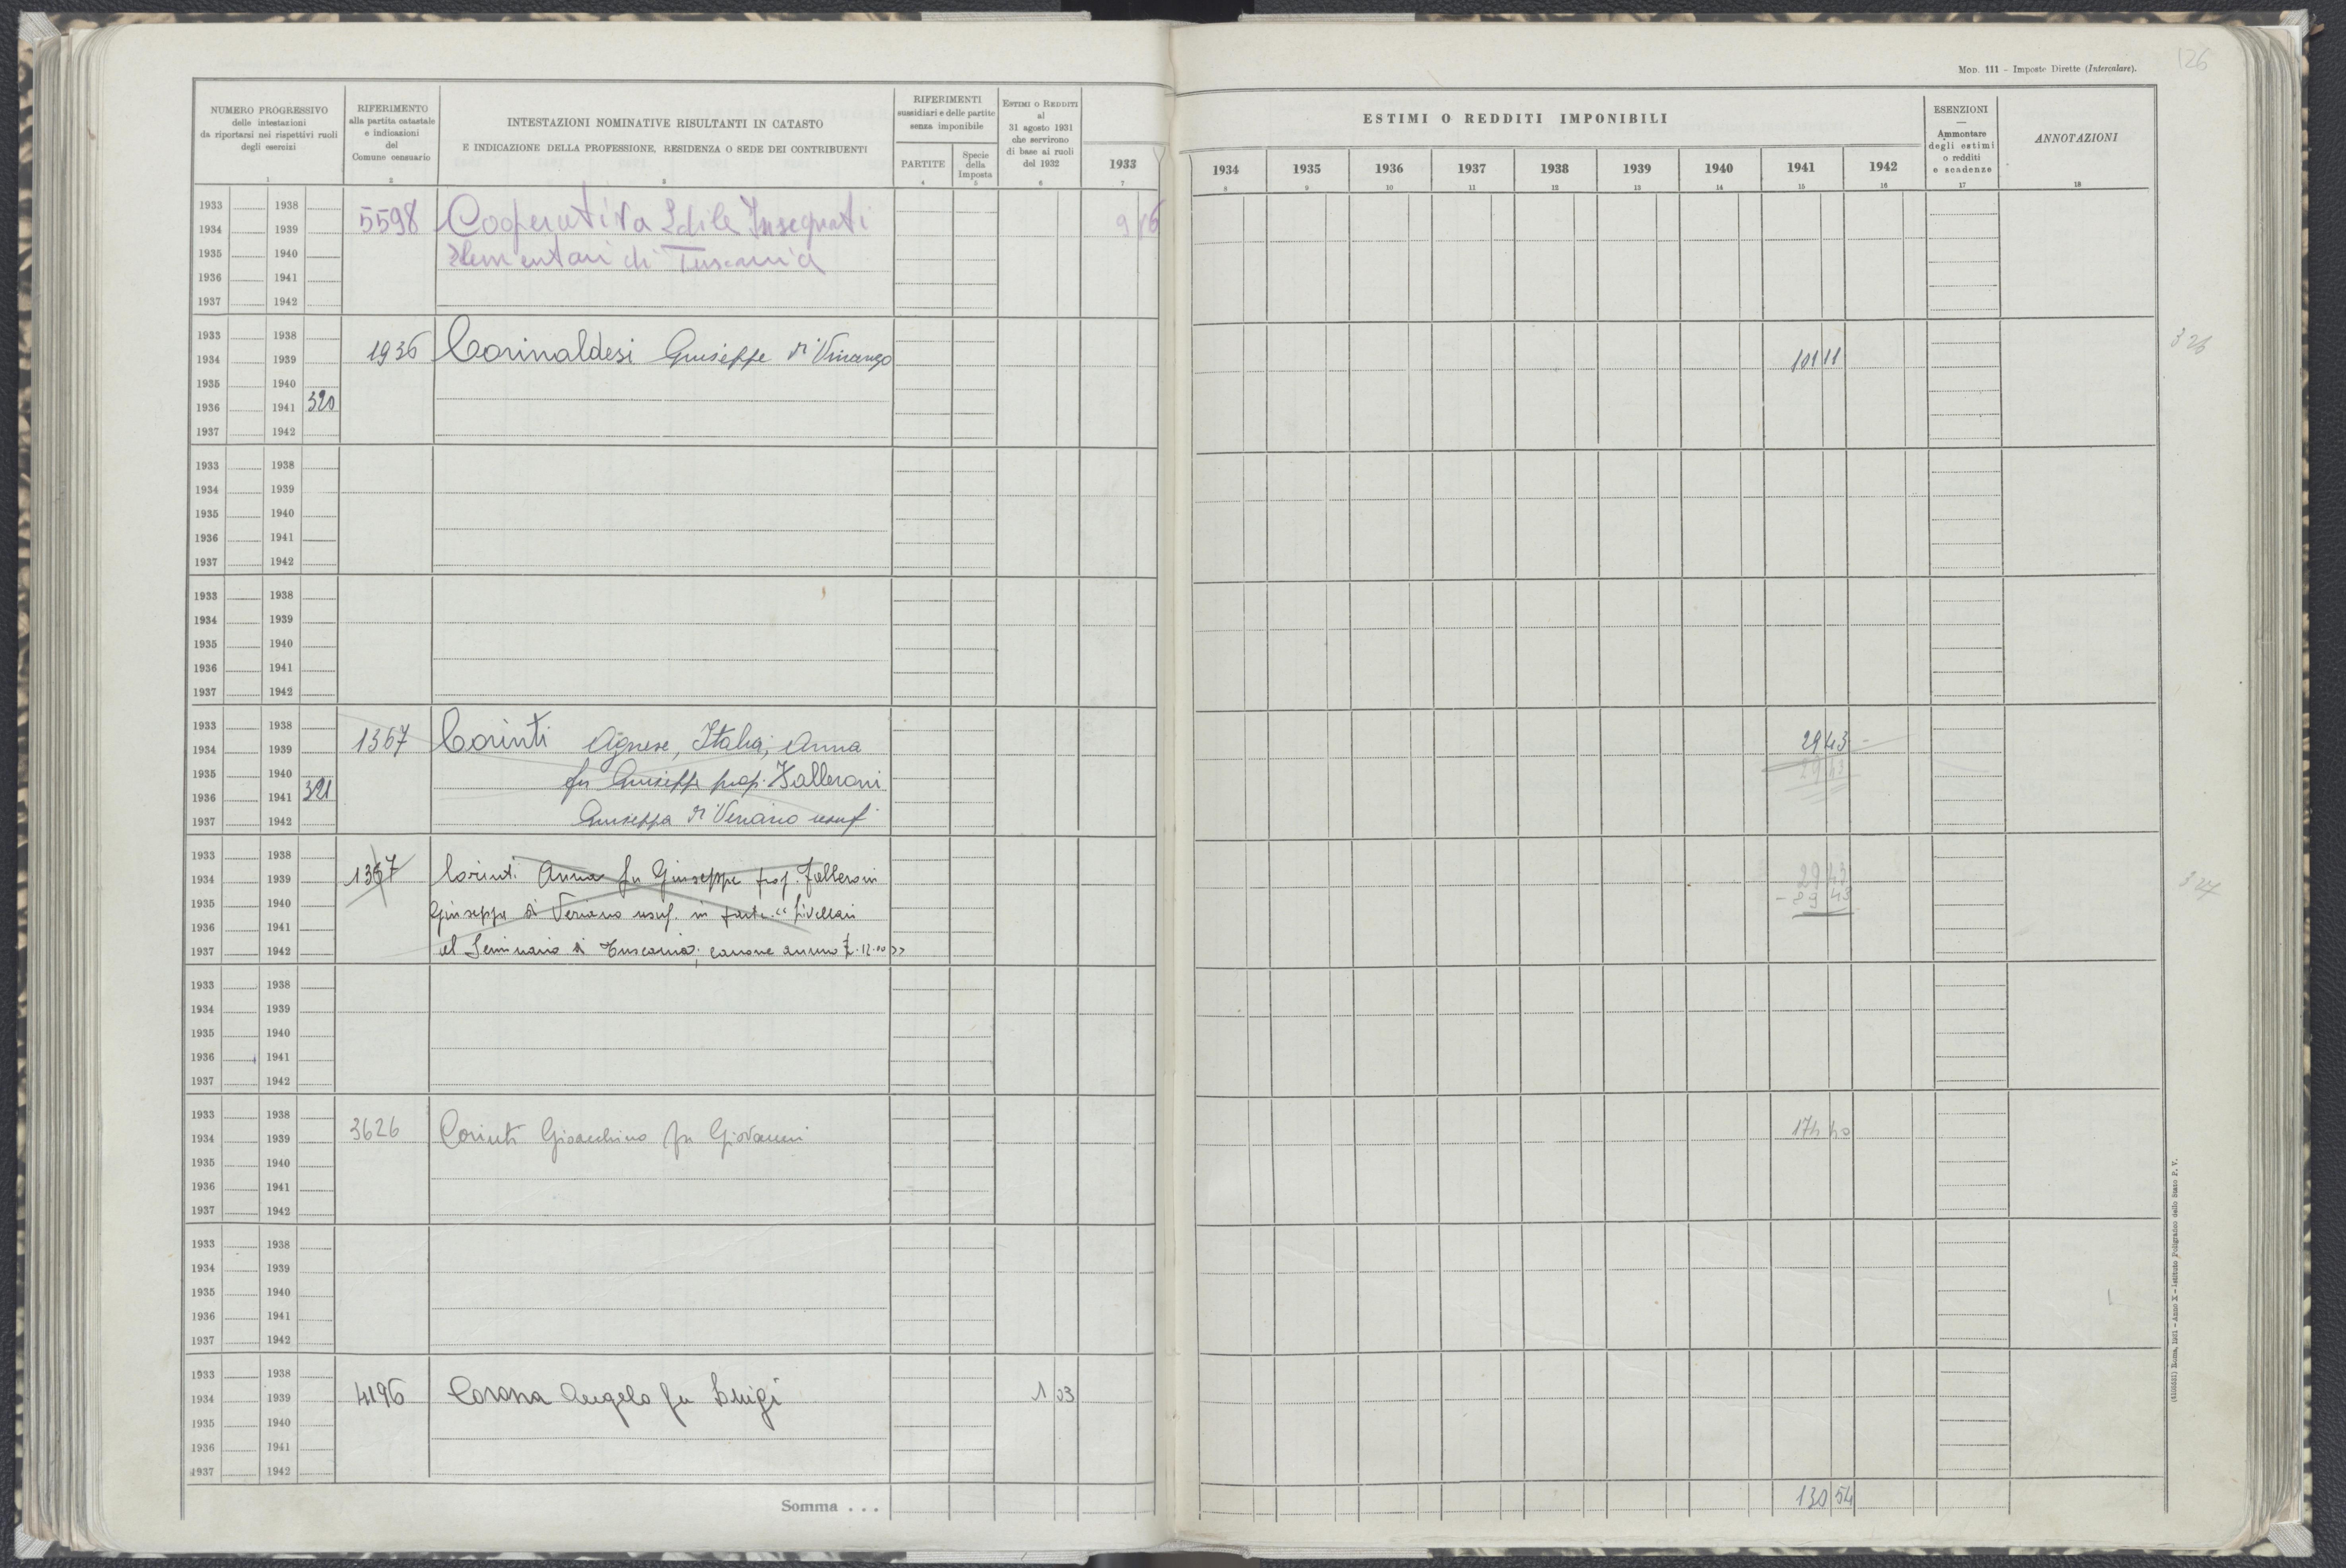 126
Mod. 111 - Imposte Dirette (Intercalare).
NUMERO PROGRESSIVO
delle intestazioni
da riportarsi nei rispettivi ruoli
degli esercizi
1
RIFERIMENTO
alla partita catastale
e indicazioni
del
Comune censuario
2
INTESTAZIONI NOMINATIVE RISULTANTI IN CATASTO
E INDICAZIONE DELLA PROFESSIONE, RESIDENZA O SEDE DEI CONTRIBUENTI
3
RIFERIMENTI
sussidiari e delle partite
senza imponibile
PARTITE
4
Specie
della
Imposta
5
Estimi o Redditi
al
31 agosto 1931
che servirono
di base ai ruoli
del 1932
6
1933
7
ESTIMI O REDDITI IMPONIBILI
1934 1935 1936 1937 1938 1939 1940 1941 1942
8 9 10 11 12 13 14 15 16
ESENZIONI
—
Ammontare
degli estimi
o redditi
e scadenze
17
ANNOTAZIONI
18
1933 1938
1934 1939 5598 Cooperativa Edile Insegnati 9 16
1935 1940 Elementari di Tuscania
1936 1941
1937 1942
1933 1938
1934 1939 1936 Corinaldesi Giuseppe di Vincenzo 101 11 326
1935 1940
1936 1941 320
1937 1942
1933 1938
1934 1939
1935 1940
1936 1941
1937 1942
1933 1938
1934 1939
1935 1940
1936 1941
1937 1942
1933 1938
1934 1939 1367 Corinti Agnese, Italia, Anna 29 43 -
1935 1940 fu Giuseppe prop. Falleroni 29 43
1936 1941 321
1937 1942 Giuseppa di Veriano usuf.
1933 1938
1934 1939 1367 Corinti Anna fu Giuseppe prop. Falleroni 29 43 327
1935 1940 Giuseppa di Veriano usuf. in parte "livellari
1936 1941
1937 1942 al Seminario di Tuscania; canone annuo
1933 1938
1934 1939
1935 1940
1936 1941
1937 1942
1933 1938
1934 1939 3626 Corinti Gioacchino fu Giovanni
1935 1940
1936 1941
1937 1942
1933 1938
1934 1939
1935 1940
1936 1941
1937 1942
1933 1938
1934 1939 4196 Corona Angelo fu Luigi 1 03
1935 1940
1936 1941
1937 1942
Somma . . . 130 54
(4103531) Roma, 1931 - Anno X - Istituto Poligrafico dello Stato P. V.